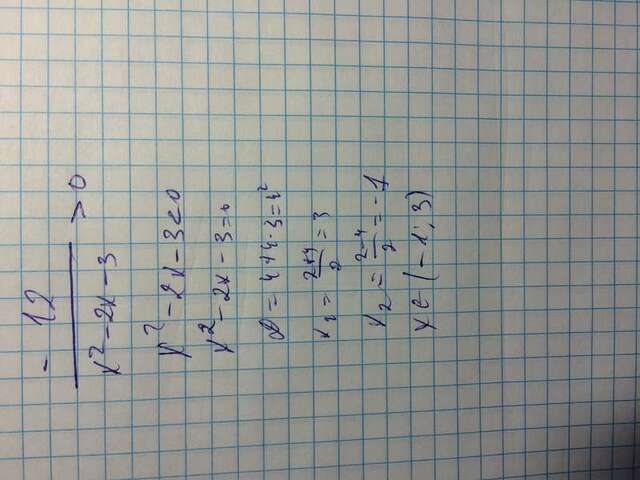 - 12
x² - 2x - 3 > 0
x² - 2x - 3 < 0
x² - 2x - 3 = 0
D = 4 + 4 · 3 = 4²
x₁ = 2+4/2 = 3
x₂ = 2-4/2 = -1
x ∈ (-1; 3)